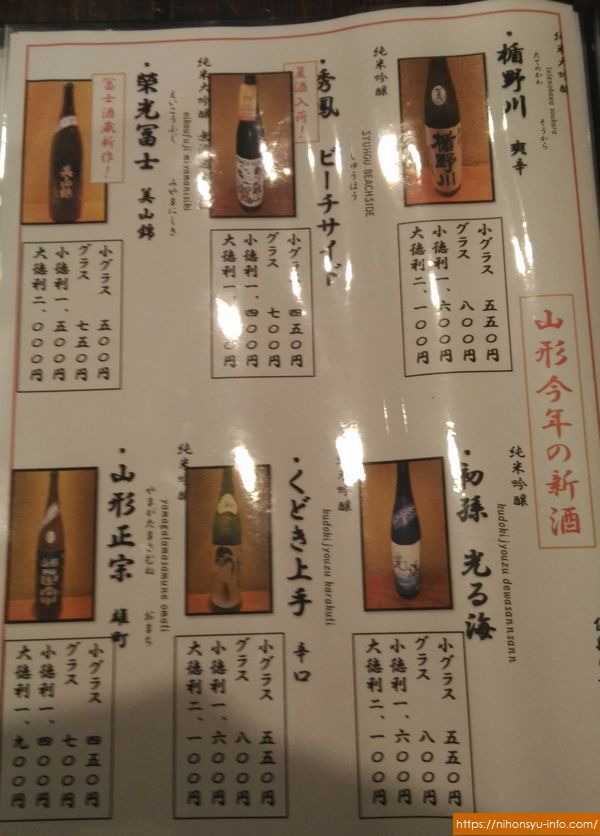 山形今年の新酒
純米大吟醸
・楯野川 爽辛
たてのかわ そうから
小グラス 五五〇円
グラス 八〇〇円
小徳利一、六〇〇円
大徳利二、一〇〇円
純米吟醸
・秀鳳 ビーチサイド
しゅうほう
SYUHOU BEACHSIDE
夏酒入荷！
小グラス 四五〇円
グラス 七〇〇円
小徳利一、四〇〇円
純米大吟醸
・榮光冨士 美山錦
えいこうふじ みやまにしき
eikoufuji miyamanisiki
冨士酒蔵新作！
美山錦
小グラス 五〇〇円
グラス 七五〇円
小徳利一、五〇〇円
大徳利二、〇〇〇円
純米吟醸
・初孫 光る海
kudokijyouzu dewasannsann
小グラス 五五〇円
グラス 八〇〇円
小徳利一、六〇〇円
大徳利二、一〇〇円
純米吟醸
・くどき上手 辛口
kudokijyouzu karakuti
小グラス 五五〇円
グラス 八〇〇円
小徳利一、六〇〇円
大徳利二、一〇〇円
純米吟醸
・山形正宗 雄町
やまがたまさむね おまち
yamagatamasamune omati
小グラス 四五〇円
グラス 七〇〇円
小徳利一、四〇〇円
大徳利一、九〇〇円
https://nihonsyu-info.com/